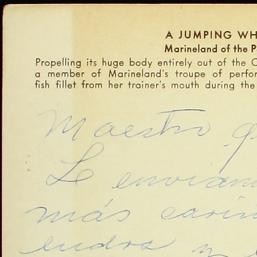 A JUMPING WH
Marineland of the P
Propelling its huge body entirely out of the
a member of Marineland's troupe of perfor
fish fillet from her trainer's mouth during the
Maestro
Le enviam
más cariñ
y